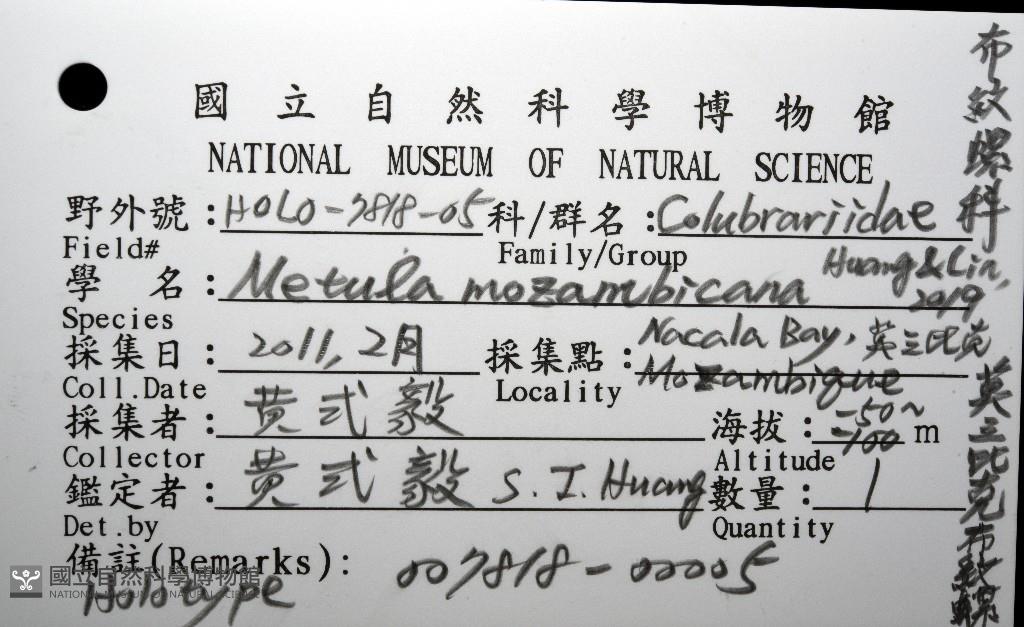 國立自然科學博物館
NATIONAL MUSEUM OF NATURAL SCIENCE
野外號：HOLO-7818-05 科/群名：Colubrariidae
Field# Family/Group
學 名：Metula mozambicana Huang & Lin, 2019
Species
採集日：2011, 2月 採集點：Nacala Bay, 莫三比克 Mozambique
Coll.Date Locality
採集者：黃式毅 海拔：-50~-100 m
Collector Altitude
鑑定者：黃式毅 S. I. Huang 數量：1
Det.by Quantity
備註(Remarks): 007818-00005
Holotype
布紋螺科
莫三比克布紋螺
國立自然科學博物館
NATIONAL MUSEUM OF NATURAL SCIENCE